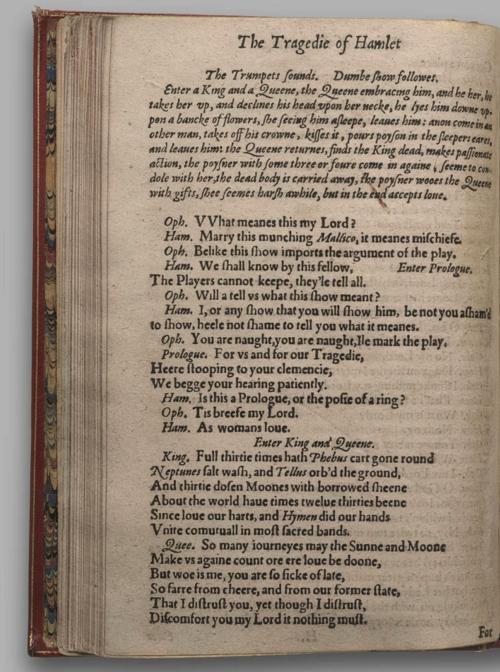 The Tragedie of Hamlet
The Trumpets sounds. Dumbe ſhow followes.
Enter a King and a Queene, the Queene embracing him, and he her, he
takes her vp, and declines his head vpon her necke, he lyes him downe vp-
pon a bancke of flowers, ſhe ſeeing him aſleepe, leaues him: anon come in an
other man, takes off his crowne, kiſſes it, pours poyſon in the ſleepers eares,
and leaues him: the Queene returnes, finds the King dead, makes paſſionate
action, the poyſner with ſome three or foure come in againe, ſeeme to con-
dole with her, the dead body is carried away, the poyſner wooes the Queene
with gifts, ſhee ſeemes harſh awhile, but in the end accepts loue.
Oph. VVhat meanes this my Lord?
Ham. Marry this munching Mallico, it meanes miſchiefe.
Oph. Belike this ſhow imports the argument of the play.
Ham. We ſhall know by this fellow, Enter Prologue.
The Players cannot keepe, they'le tell all.
Oph. Will a tell vs what this ſhow meant?
Ham. I, or any ſhow that you will ſhow him, be not you aſham'd
to ſhow, heele not ſhame to tell you what it meanes.
Oph. You are naught, you are naught, Ile mark the play.
Prologue. For vs and for our Tragedie,
Heere ſtooping to your clemencie,
We begge your hearing patiently.
Ham. Is this a Prologue, or the poſie of a ring?
Oph. Tis breefe my Lord.
Ham. As womans loue.
Enter King and Queene.
King. Full thirtie times hath Phebus cart gone round
Neptunes ſalt waſh, and Tellus orb'd the ground,
And thirtie doſen Moones with borrowed ſheene
About the world haue times twelue thirties beene
Since loue our harts, and Hymen did our hands
Vnite comutuall in moſt ſacred bands.
Quee. So many iourneyes may the Sunne and Moone
Make vs againe count ore ere loue be doone,
But woe is me, you are ſo ſicke of late,
So farre from cheere, and from our former ſtate,
That I diſtruſt you, yet though I diſtruſt,
Diſcomfort you my Lord it nothing muſt.
For